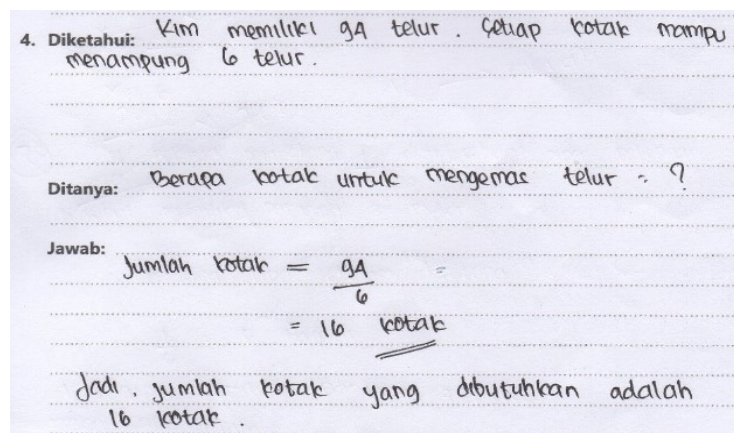 4. Diketahui: Kim memiliki 94 telur. Setiap kotak mampu
menampung 6 telur.
Ditanya: Berapa kotak untuk mengemas telur = ?
Jawab:
Jumlah kotak = 94 =
6
= 16 kotak
Jadi, jumlah kotak yang dibutuhkan adalah
16 kotak.